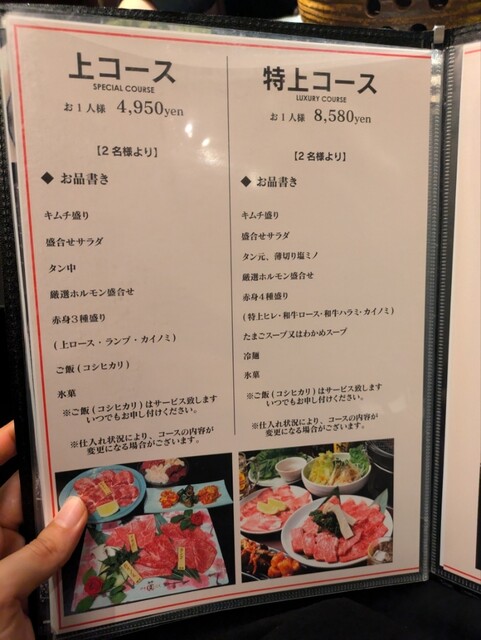 上コース
SPECIAL COURSE
お1人様 4,950yen
【2名様より】
◆ お品書き
キムチ盛り
盛合せサラダ
タン中
厳選ホルモン盛合せ
赤身3種盛り
(上ロース・ランプ・カイノミ)
ご飯(コシヒカリ)
氷菓
※ご飯(コシヒカリ)はサービス致します
いつでもお申し付けください。
※仕入れ状況により、コースの内容が
変更になる場合がございます。
特上コース
LUXURY COURSE
お1人様 8,580yen
【2名様より】
◆ お品書き
キムチ盛り
盛合せサラダ
タン元、薄切り塩ミノ
厳選ホルモン盛合せ
赤身4種盛り
(特上ヒレ・和牛ロース・和牛ハラミ・カイノミ)
たまごスープ又はわかめスープ
冷麺
氷菓
※ご飯(コシヒカリ)はサービス致します
いつでもお申し付けください。
※仕入れ状況により、コースの内容が
変更になる場合がございます。